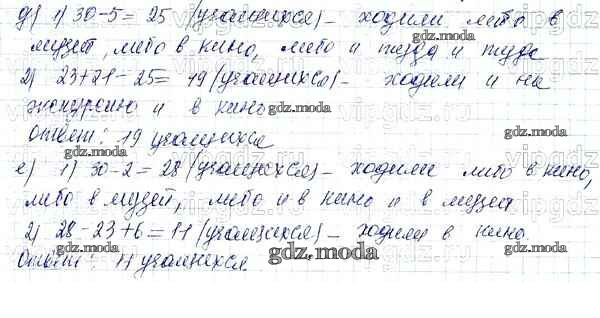 д) 1) 30-5= 25 (учащихся) – ходили либо в
музей, либо в кино, либо и туда и туда
2) 23+21-25= 19 (учащихся) – ходили и на
экскурсию и в кино
Ответ: 19 учащихся
е) 1) 30-2= 28 (учащихся) – ходили либо в кино,
либо в музей, либо и в кино и в музей
2) 28-23+6= 11 (учащихся) – ходили в кино.
Ответ: 11 учащихся.
gdz.moda
gdz.moda
gdz.moda
gdz.moda
gdz.moda
gdz.moda
gdz.moda
gdz.moda
gdz.moda